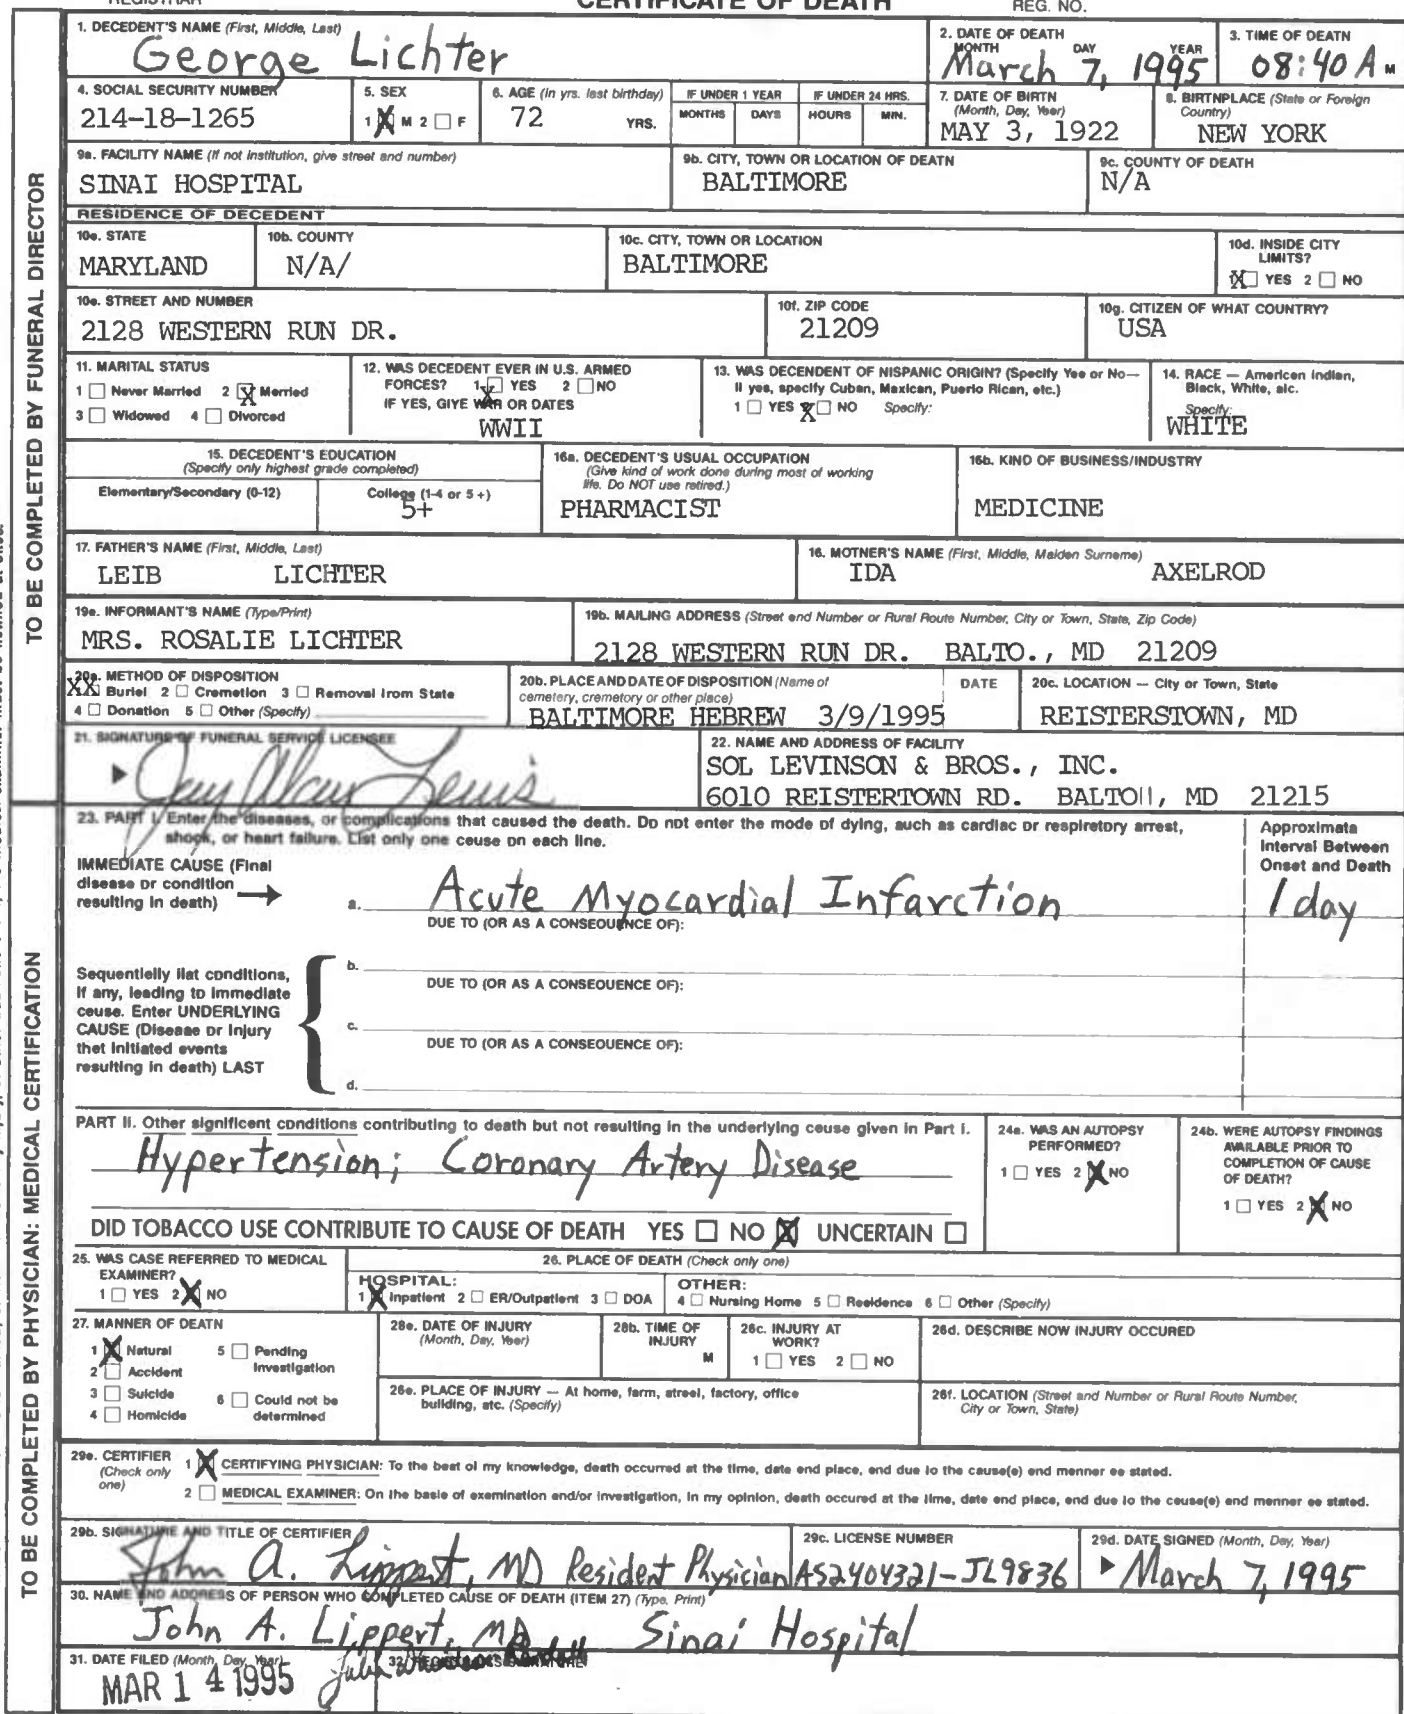 CERTIFICATE OF DEATH
REG. NO.
1. DECEDENT'S NAME (First, Middle, Last)
George Lichter
2. DATE OF DEATH
MONTH DAY YEAR
March 7, 1995
3. TIME OF DEATH
08:40 A M
4. SOCIAL SECURITY NUMBER
214-18-1265
5. SEX
1 X M 2 □ F
6. AGE (In yrs. last birthday)
72 YRS.
IF UNDER 1 YEAR
MONTHS DAYS
IF UNDER 24 HRS.
HOURS MIN.
7. DATE OF BIRTH
(Month, Day, Year)
MAY 3, 1922
8. BIRTHPLACE (State or Foreign
Country)
NEW YORK
9a. FACILITY NAME (If not institution, give street and number)
SINAI HOSPITAL
9b. CITY, TOWN OR LOCATION OF DEATH
BALTIMORE
9c. COUNTY OF DEATH
N/A
RESIDENCE OF DECEDENT
10a. STATE
MARYLAND
10b. COUNTY
N/A/
10c. CITY, TOWN OR LOCATION
BALTIMORE
10d. INSIDE CITY
LIMITS?
X YES 2 □ NO
10e. STREET AND NUMBER
2128 WESTERN RUN DR.
10f. ZIP CODE
21209
10g. CITIZEN OF WHAT COUNTRY?
USA
11. MARITAL STATUS
1 □ Never Married 2 X Married
3 □ Widowed 4 □ Divorced
12. WAS DECEDENT EVER IN U.S. ARMED
FORCES? 1 X YES 2 □ NO
IF YES, GIVE WAR OR DATES
WWII
13. WAS DECENDENT OF HISPANIC ORIGIN? (Specify Yes or No—
If yes, specify Cuban, Mexican, Puerto Rican, etc.)
1 □ YES X NO Specify:
14. RACE — American Indian,
Black, White, etc.
Specify:
WHITE
15. DECEDENT'S EDUCATION
(Specify only highest grade completed)
Elementary/Secondary (0-12)
College (1-4 or 5 +)
5+
16a. DECEDENT'S USUAL OCCUPATION
(Give kind of work done during most of working
life. Do NOT use retired.)
PHARMACIST
16b. KIND OF BUSINESS/INDUSTRY
MEDICINE
17. FATHER'S NAME (First, Middle, Last)
LEIB LICHTER
18. MOTHER'S NAME (First, Middle, Maiden Surname)
IDA AXELROD
19a. INFORMANT'S NAME (Type/Print)
MRS. ROSALIE LICHTER
19b. MAILING ADDRESS (Street and Number or Rural Route Number, City or Town, State, Zip Code)
2128 WESTERN RUN DR. BALTO., MD 21209
20a. METHOD OF DISPOSITION
XX Burial 2 □ Cremation 3 □ Removal from State
4 □ Donation 5 □ Other (Specify)
20b. PLACE AND DATE OF DISPOSITION (Name of
cemetery, crematory or other place)
DATE
BALTIMORE HEBREW 3/9/1995
20c. LOCATION — City or Town, State
REISTERSTOWN, MD
21. SIGNATURE OF FUNERAL SERVICE LICENSEE
Jay Alan Lewis
22. NAME AND ADDRESS OF FACILITY
SOL LEVINSON & BROS., INC.
6010 REISTERTOWN RD. BALTO||, MD 21215
23. PART I. Enter the diseases, or complications that caused the death. Do not enter the mode of dying, such as cardiac or respiratory arrest,
shock, or heart failure. List only one cause on each line.
Approximate
Interval Between
Onset and Death
IMMEDIATE CAUSE (Final
disease or condition
resulting in death) →
a. Acute Myocardial Infarction
1 day
DUE TO (OR AS A CONSEQUENCE OF):
Sequentially list conditions,
if any, leading to immediate
cause. Enter UNDERLYING
CAUSE (Disease or Injury
that initiated events
resulting in death) LAST
b.
DUE TO (OR AS A CONSEQUENCE OF):
c.
DUE TO (OR AS A CONSEQUENCE OF):
d.
PART II. Other significant conditions contributing to death but not resulting in the underlying cause given in Part I.
Hypertension; Coronary Artery Disease
DID TOBACCO USE CONTRIBUTE TO CAUSE OF DEATH YES □ NO X UNCERTAIN □
24a. WAS AN AUTOPSY
PERFORMED?
1 □ YES 2 X NO
24b. WERE AUTOPSY FINDINGS
AVAILABLE PRIOR TO
COMPLETION OF CAUSE
OF DEATH?
1 □ YES 2 X NO
25. WAS CASE REFERRED TO MEDICAL
EXAMINER?
1 □ YES 2 X NO
26. PLACE OF DEATH (Check only one)
HOSPITAL:
1 X Inpatient 2 □ ER/Outpatient 3 □ DOA
OTHER:
4 □ Nursing Home 5 □ Residence 6 □ Other (Specify)
27. MANNER OF DEATH
1 X Natural 5 □ Pending
Investigation
2 □ Accident
3 □ Suicide 6 □ Could not be
determined
4 □ Homicide
28a. DATE OF INJURY
(Month, Day, Year)
28b. TIME OF
INJURY
M
28c. INJURY AT
WORK?
1 □ YES 2 □ NO
28d. DESCRIBE HOW INJURY OCCURED
28e. PLACE OF INJURY — At home, farm, street, factory, office
building, etc. (Specify)
28f. LOCATION (Street and Number or Rural Route Number,
City or Town, State)
29a. CERTIFIER
(Check only
one)
1 X CERTIFYING PHYSICIAN: To the best of my knowledge, death occurred at the time, date and place, and due to the cause(s) and manner as stated.
2 □ MEDICAL EXAMINER: On the basis of examination and/or investigation, in my opinion, death occured at the time, date and place, and due to the cause(s) and manner as stated.
29b. SIGNATURE AND TITLE OF CERTIFIER
John A. Lippert, MD Resident Physician
29c. LICENSE NUMBER
AS2404321-JL9836
29d. DATE SIGNED (Month, Day, Year)
March 7, 1995
30. NAME AND ADDRESS OF PERSON WHO COMPLETED CAUSE OF DEATH (ITEM 27) (Type, Print)
John A. Lippert, MD Sinai Hospital
31. DATE FILED (Month, Day, Year)
MAR 14 1995
32. REGISTRAR'S SIGNATURE
TO BE COMPLETED BY FUNERAL DIRECTOR
TO BE COMPLETED BY PHYSICIAN: MEDICAL CERTIFICATION